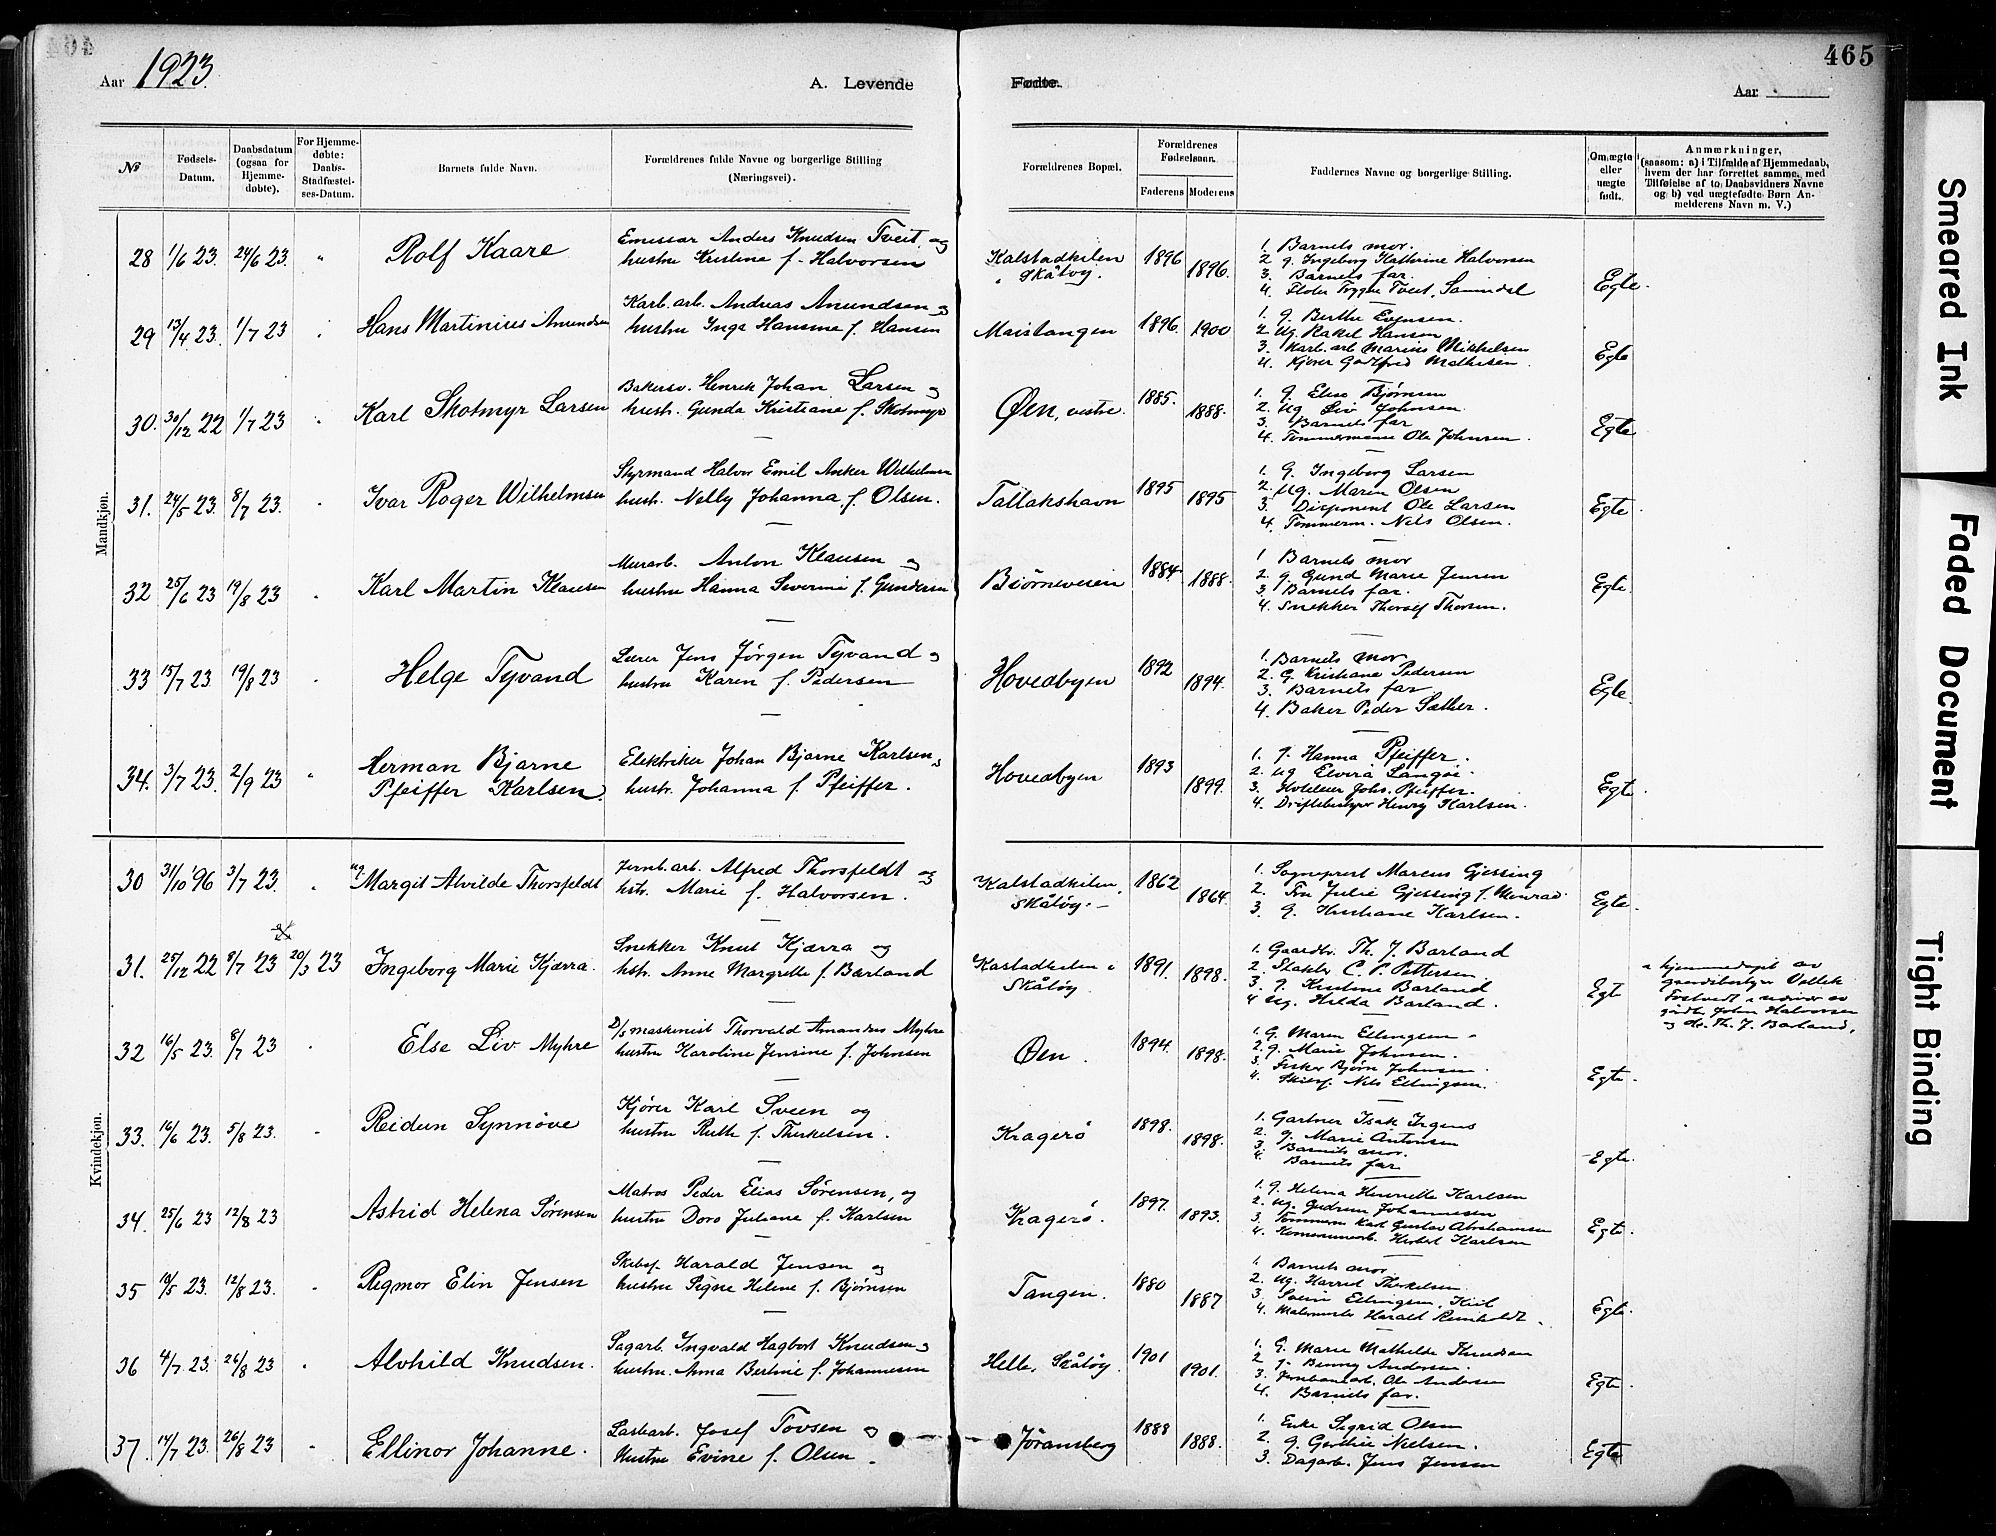 465
Aar 1923.
A. Levende
Fødte.
Aar
№
Fødsels-Datum.
Daabsdatum (ogsaa for Hjemme-døbte).
For Hjemme-døbte: Daabs-Stadfæstel-ses-Datum.
Barnets fulde Navn.
Forældrenes fulde Navne og borgerlige Stilling (Næringsvei).
Forældrenes Bopæl.
Forældrenes Fødselsaar.
Faderens
Moderens
Faddernes Navne og borgerlige Stilling.
Om ægte eller uægte født.
Anmærkninger, (saasom: a) i Tilfælde af Hjemmedaab, hvem der har forrettet samme, med Tilføielse af to Daabsvidners Navne og b) ved uægtefødte Børn An-melderens Navn m. V.)
Mandkjøn.
28 1/6 23. 24/6 23. " Rolf Kaare
Emissær Anders Knudsen Tveit og
hustru Kristine f. Halvorsen
Kalstadkilen
Skåtøy.
1896 1896.
1. Barnets mor.
2. g. Ingeborg Kathrine Halvorsen
3. Barnets far.
4. Tveit,
Egte.
29 13/4 23. 1/7 23 Hans Martinius Amundsen
Karb. arb. Andreas Amundsen og
hustru Inga Hansine f. Hansen
Maistangen
1896. 1900
1. g. Berthe Evensen.
2. ug Rakel Hansen
3. Karb. arb Marius Mikkelsen
4. Kjører Godtfred Mathisen
Egte
30. 30/12 22 1/7 23 Karl Skotmyr Larsen
Bakersv. Henrik Johan Larsen og
hustr. Gunda Kristiane f. Skotmyr
Øen, vestre.
1885. 1888.
1. g. Elise Bjørnsen
2. ug Liv Johnsen.
3. Barnets far
4. Tømmermann Ole Johnsen.
Egte
31. 24/5 23. 8/7 23. Ivar Roger Wilhelmsen
Styrmand Halvor Emil Anker Wilhelmsen
hustr. Nelly Johanna f. Olsen.
Tallakshavn
1895 1895
1. G. Ingeborg Larsen
2. ug. Maren Olsen
3. Disponent Ole Larsen
4. Tømmerm. Nils Olsen.
Egte
32 25/6 23 19/8 23 Karl Martin Klausen
Murarb. Anton Klausen og
hustru Hanna Severine f. Gundersen
Bjørneveien
1884 1888.
1. Barnets mor
2. g. Gund Marie Jensen
3. Barnets far.
4. Snekker Thorolf Thorsen.
Egte.
33 15/7 23 19/8 23 Helge Tyvand
Lærer Jens Jørgen Tyvand og
hustru Karen f. Pedersen
Hovedbyen
1892 1894.
1. Barnets mor
2. G. Kristiane Pedersen
3. Barnets far
4. Baker Peder Sæther.
Egte.
34. 3/7 23. 2/9 23 " Herman Bjarne
Pfeiffer Karlsen.
Elektriker Johan Bjarne Karlsen og
hustr. Johanna f. Pfeiffer.
Hovedbyen
1893 1899.
1. f. Hanna Pfeiffer.
2. ug Elvira Langøi.
3. Hoteleier Johs. Pfeiffer.
4. Driftsbestyrer Henry Karlsen.
Egte.
Kvindekjøn.
30 31/10 96 3/7 23. ug Margit Alvilde Thorsfeldt
Jernb. arb. Alfred Thorsfeldt og
hstr. Marie f. Halvorsen.
Kalstadkilen,
Skåtøy.
1862 1864.
1. Sogneprest Marcus Gjessing
2. Fru Julie Gjessing f. Monrad
3. G. Kristiane Karlsen.
Egte.
31. 25/12 22 8/7 23 20/3 23 Ingeborg Marie Kjærra.
Snekker Knut Kjærra og
hstr. Anne Margrethe f. Barland
Kastadkilen i
Skåtøy
1891. 1898.
1. Gaardbr. Th. J. Barland
2. C. P. Pettersen
3. g. Kristine Barland
4 ug. Hilda Barland.
Egte
hjemmedøpt av
gaardsbestyr
Fostvedt
John Halvorsen
og Th. J. Barland.
32 16/5 23. 8/7 23 Else Liv Myhre
D/s maskinist Thorvald Amandus Myhre
hustru Karoline Jensine f. Johnsen
Øen.
1894. 1898.
1. G. Maren Ellingsen
2. g. Marie Johnsen.
3. Fisker Bjørn Johnsen.
4. Skibsf. Nils Ellingsen.
Egte.
33. 16/6 23. 5/8 23. Reidun Synnøve
Kjører Karl Sveen og
hustru Ruth f. Therkelsen.
Kragerø
1898. 1898.
1. Gartner Isak Irgens
2. g. Marie Antonsen
3. Barnets mor.
4. Barnets far
Egte.
34. 25/6 23 12/8 23 Astrid Helena Sørensen
Matros Peder Elias Sørensen, og
hustru Doro Juliane f. Karlsen
Kragerø.
1897. 1893.
1. g. Helena Henriette Karlsen
2. ug. Gudrun Johannesen
3. Tømmerm Karl Gustav Abrahamsen
4. Herbert Karlsen
Egte
35 10/5 23. 12/8 23. Regmor Elin Jensen
Skibsf. Harald Jensen og
hustru Signe Helene f. Bjørnsen
Tangen.
1880 1887
1. Barnets mor
2. ug. Harred Therkelsen.
3. Ellingsen, Kiil
4. Malermester Harald Reinholdt.
Egte.
36 4/7 23. 26/8 23 Alvhild Knudsen.
Sagarb. Ingvald Hagbart Knudsen og
hustru. Anna Bertine f. Johannesen
Helle, Skåtøy.
1901 1901.
1. G. Marie Mathilde Knudsen
2. g. Benny Andersen.
3. Jernbanearb. Ole Andersen
4. Barnets far.
Egte.
37 14/7 23. 26/8 23 Ellinor Johanne.
Lastarb. Josef Tovsen og
hustru Evine f. Olsen.
Jøransberg
1888 1888.
1. Enke Sigrid Olsen
2. g. Gerthie Nielsen.
3. Dagarb. Jens Jensen
Egte
Smeared Ink
Faded Document
Tight Binding